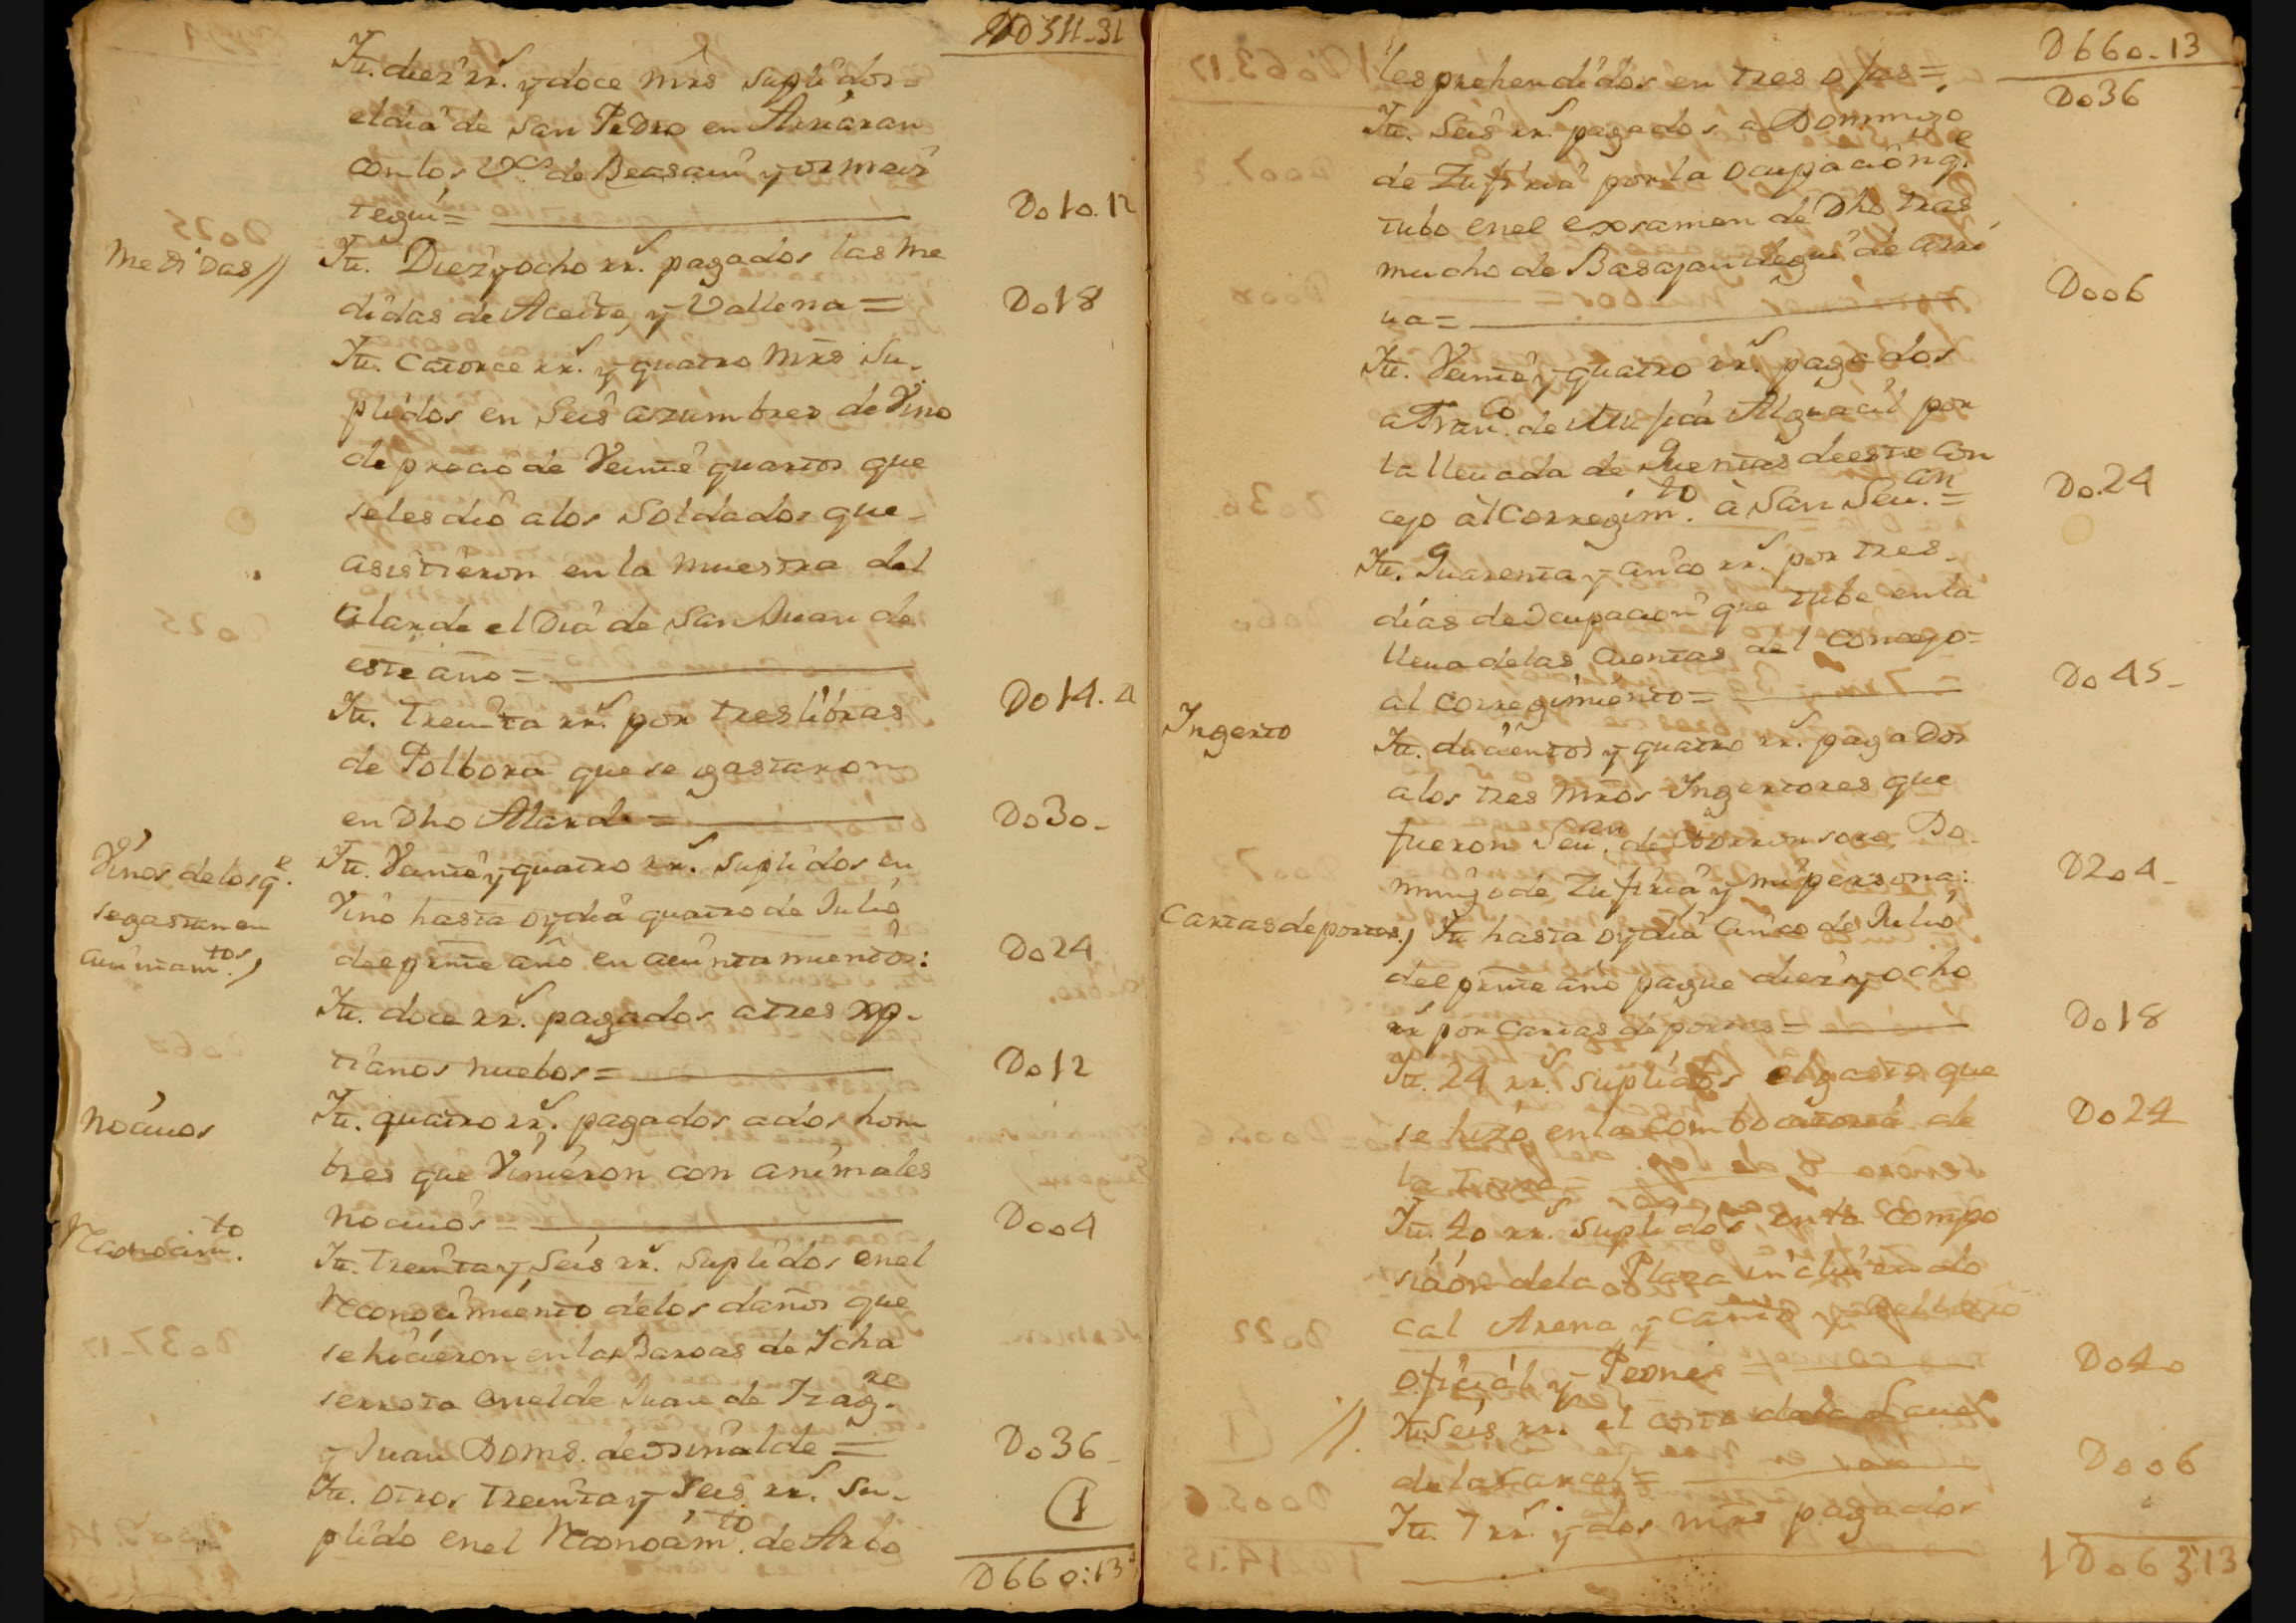 D0511-31
Itt. diez rr.s y doce mrs suplidos
el dia de San Pedro en Arriaran
con los V.os de Beasain y ormaiz
tegui= Do10.12
Medidas// Itt. Diez y ocho rr.s pagados las me
didas de Aceite, y Vallena= Do18
Itt. Catorce rr.s y quatro mrs su-
plidos en seis azumbres de Vino
de precio de Veinte quartos que
seles dio alos Soldados que-
asistieron en la muestra del
alarde el Dia de San Juan de
este año= Do14.4
Itt. treinta rr.s por tres libras
de Polbora que se gastaron
en Dho Alarde= Do30-
Vinos de los q.e
se gastan en
aiuntam.tos)
Itt. Veinte y quatro rr.s suplidos en
Vino hasta oy dia quatro de Julio
deepnte año en aiuntamientos: Do24
Itt. doce rr.s pagados a tres xp-
tianos nuebos= Do12
Nocivos Itt. quatro rr.s pagados a dos hom
bres que Vinieron con animales
nocivos- Doo4
Reconocim.to
Itt. treinta y seis rr.s suplidos en el
Reconocimiento delos daños que
se hicieron en las Barcas de Icha
serrota en el de Juan de Izag.re
y Juan Doms. de osinalde= Do36-
Itt. otros treinta y seis rr.s su-
plido en el Reconocim.to de Arbo
1
D660:13

D660-13
les prehendidos en tres ojas= Do36
Itt. seis rr.s pagados a Domingo
de Zufiria por la ocupacion q.e
tubo en el exsamen de Dho tras
mucho de Basajaundegui de arri
ua= Doo6
Itt. Veinte y quatro rr.s pagados
a Fran.co de Mufica Alguacil por
la lleuada de Quentas de este con
cejo àl Corregim.to à San Seu.an= Do.24
Itt. Quarenta y cinco rr.s por tres-
días de ocupacion que tube en la
lleua delas Cuentas del Concejo=
al corregimiento= Do45-
Ingerto Itt. ducientos y quatro rr.s pagados
a los tres mros Ingertores que
fueron Seu.an de Aorronsoro, Do-
mingo de Zufiria y mi persona: D2o4-
Cartas de portes) Itt hasta oy dia cinco de Julio
deepnte año pague diez y ocho
rr.s por cartas de portes= Do18
Itt. 24 rr.s suplidos el gasto que
se hizo en la combocatoria de
la Do24
Itt. 40 rr.s suplidos en la compo
sicion de la Plaza incluiendo
cal Arena y
oficiál y Peones Do4o
//. Itt. Seis rr. el costo dela Laue
de la Carcel= Doo6
Itt. 7 rr.s y dos mrs pagados
1Do63:13